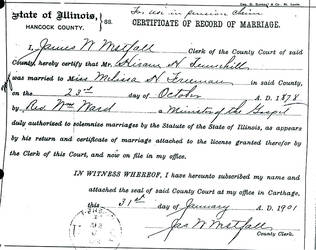 State of Illinois, } ss. To use in pension claim
HANCOCK COUNTY. CERTIFICATE OF RECORD OF MARRIAGE.
I, James W Metfall Clerk of the County Court of said
County, hereby certify that Mr. Hiram H
was married to Miss Melissa H Freeman in said County,
on the 23rd day of October A. D. 1878
by Rev. Wm Ward a Minister of the Gospel
duly authorized to solemnize marriages by the Statute of the State of Illinois, as appears
by his return and certificate of marriage attached to the license granted therefor by
the Clerk of this Court, and now on file in my office.
IN WITNESS WHEREOF, I have hereunto subscribed my name and
attached the seal of said County Court at my office in Carthage,
this 31st day of January A. D. 1901
Jas W Metfall
County Clerk.